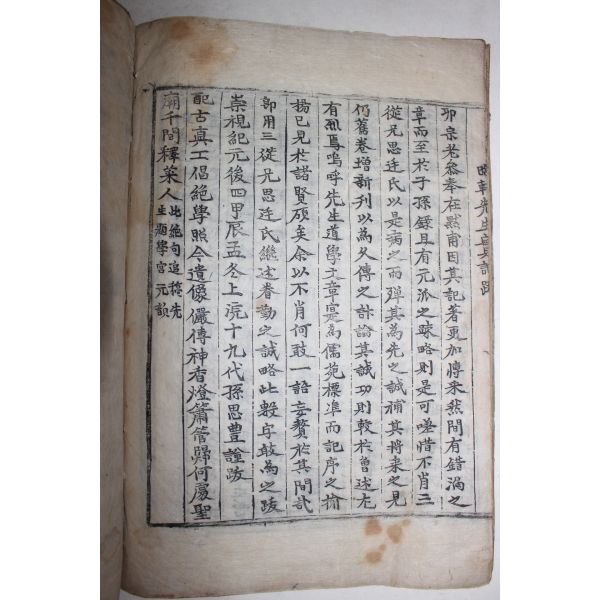 晦軒先生實記跋
卯宗老參奉在黙甫因其記著更加傳來然間有錯漏之
章而至於子孫錄且有元派之踈略則是可嗟惜不肖三
從兄思迋氏以是病之而殫其為先之誠補其將來之見
仍舊卷增新刊以為久傳之計論其誠功則較於曾述尤
有烈焉嗚呼先生道學文章寔為儒苑標準而記序之揄
揚已見於諸賢矣余以不肖何敢一語妄贅於其間哉
郎用三從兄思迋氏繼述眷勤之誠略此數字敢為之跋
崇禎紀元後四甲辰孟冬上浣十九代孫思豊謹跋
配古真工倡絶學照今遺像儼傳神香燈簫管歸何處聖
廟千間釋菜人
此絶句追稿先
生題學宮元韻